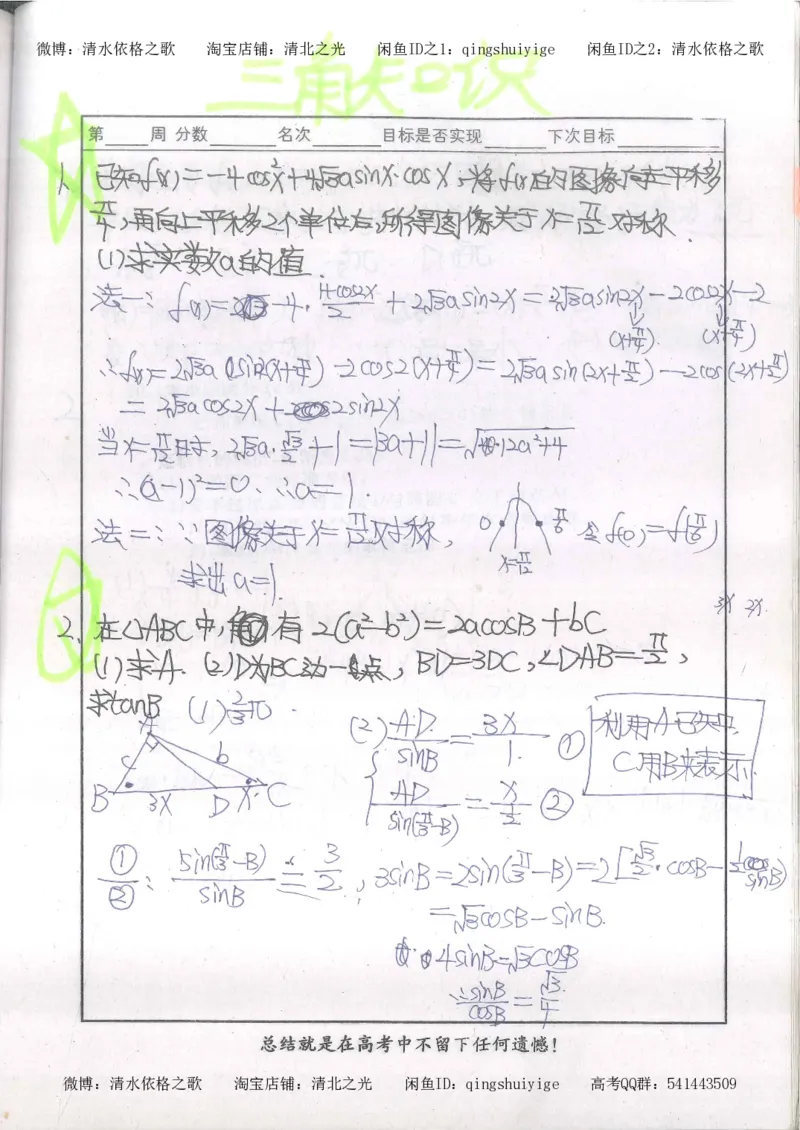 微博：清水依格之歌 淘宝店铺：清北之光 闲鱼ID之1：qingshuiyige 闲鱼ID之2：清水依格之歌
三角知识
第 周 分数 名次 目标是否实现 下次目标
1、已知f(x)=-4cos²x+4√3asinx·cosx，将f(x)的图像向左平移
π/4，再向上平移2个单位后，所得图像关于x=π/12对称.
(1)求实数a的值.
法一：f(x)=-4·(1+cos2x)/2+2√3asin2x=2√3asin2x-2cos2x-2
(x+π/4) (x+π/4)
∴f(x)=2√3a sin2(x+π/4)-2cos2(x+π/4)=2√3asin(2x+π/2)-2cos(2x+π/2)
=2√3acos2x+2sin2x
当x=π/12时，|2√3a·√3/2+1|=|3a+1|=√12a²+4
∴(a-1)²=0.∴a=1
法二：∵图像关于x=π/12对称， 0 π/6 令f(0)=f(π/6)
x=π/12
求出a=1.
3x 2x.
2、在△ABC中，有2(a²-b²)=2acosB+bC
(1)求A. (2)D为BC边一点，BD=3DC，∠DAB=π/2，
求tanB (1)2/3π.
(2) AD/sinB=3x/1. ①
AD/sin(π/3-B)=x/(1/2) ②
利用A已知.
C用B来表示.
A
c b
B 3x D x C
①/②：sin(π/3-B)/sinB=3/2，3sinB=2sin(π/3-B)=2[√3/2·cosB-1/2sinB)
=√3cosB-sinB.
∴4sinB=√3cosB
∴sinB/cosB=√3/4.
总结就是在高考中不留下任何遗憾！
微博：清水依格之歌 淘宝店铺：清北之光 闲鱼ID：qingshuiyige 高考QQ群：541443509